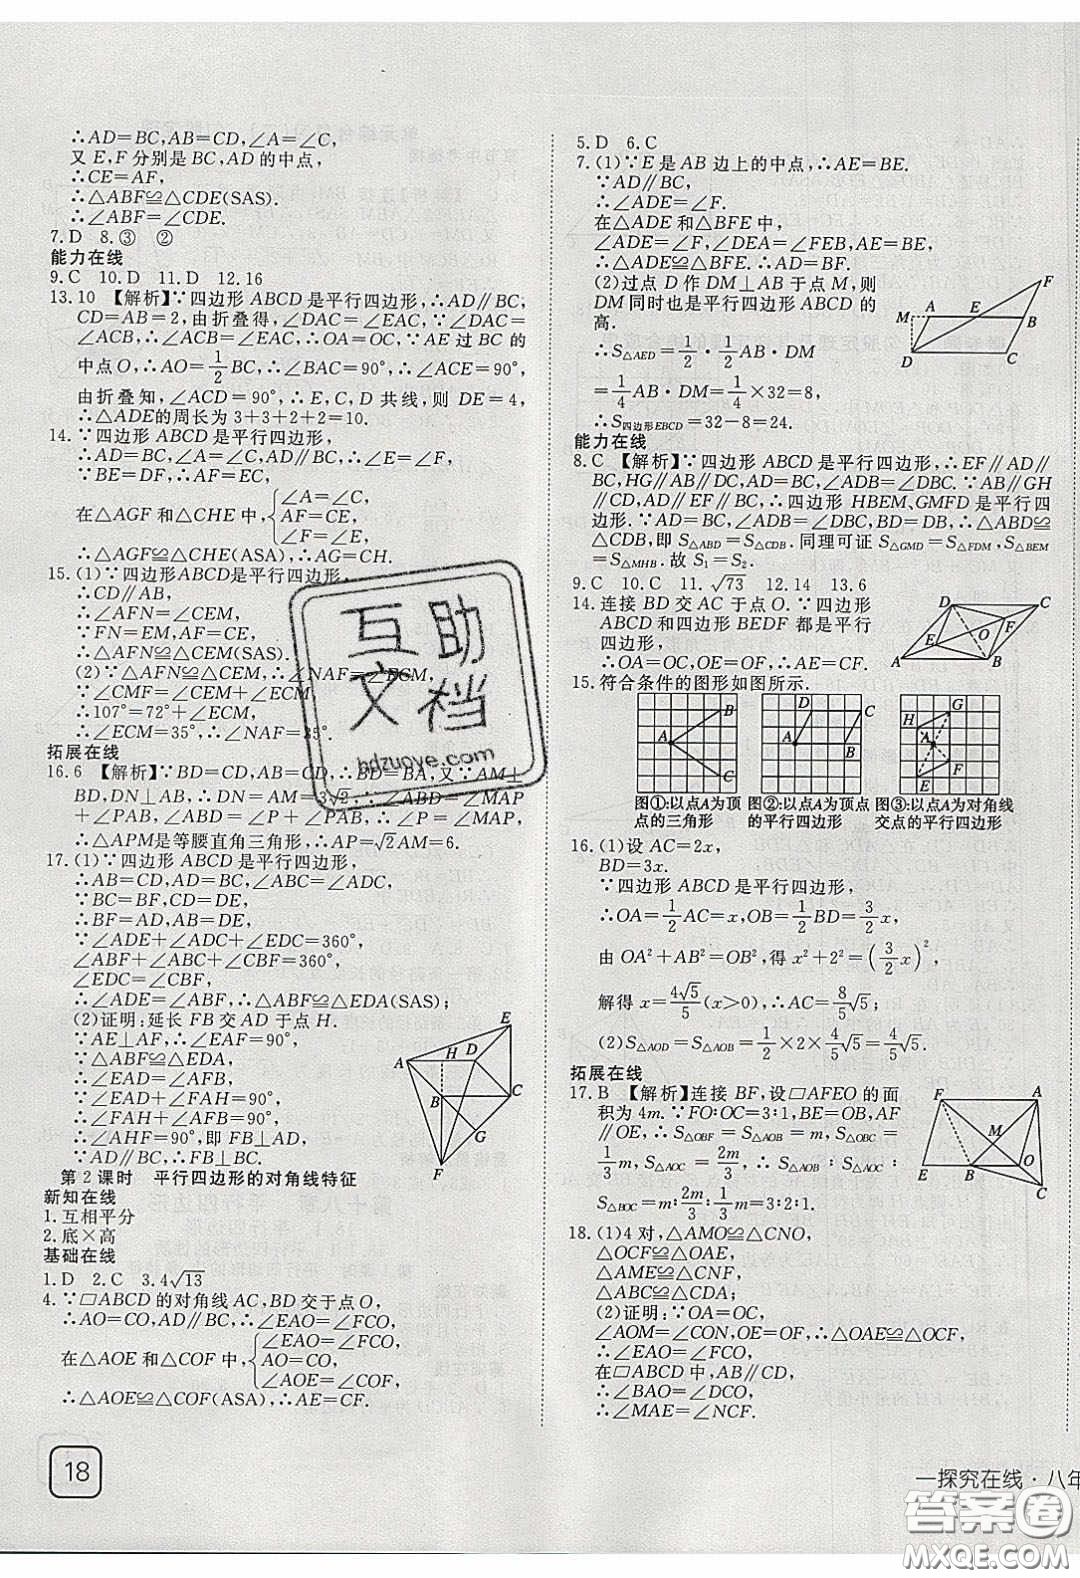 ∴AD=BC,AB=CD,∠A=∠C,
又 E,F 分别是 BC,AD 的中点,
∴CE=AF,
∴△ABF≌△CDE(SAS).
∴∠ABF=∠CDE.
7.D 8.③ ②
能力在线
9.C 10.D 11.D 12.16
13.10 【解析】∵四边形 ABCD 是平行四边形,∴AD∥BC,
CD=AB=2,由折叠得,∠DAC=∠EAC,∵∠DAC=
∠ACB,∴∠ACB=∠EAC,∴OA=OC,∵AE 过 BC 的
中点 O,∴AO=1/2 BC,∴∠BAC=90°,∴∠ACE=90°,
由折叠知,∠ACD=90°,∴E,C,D 共线,则 DE=4,
∴△ADE的周长为 3+3+2+2=10.
14.∵四边形 ABCD 是平行四边形,
∴AD∥BC,∠A=∠C,∴∠E=∠F,
∵BE=DF,∴AF=EC,
在△AGF 和△CHE 中,{∠A=∠C, AF=CE, ∠F=∠E,
∴△AGF≌△CHE(ASA),∴AG=CH.
15.(1)∵四边形ABCD是平行四边形,
∴CD∥AB,
∴∠AFN=∠CEM,
∵FN=EM,AF=CE,
∴△AFN≌△CEM(SAS).
(2)∵△AFN≌△CEM,∴∠NAF=∠ECM,
∵∠CMF=∠CEM+∠ECM,
∴107°=72°+∠ECM,
∴∠ECM=35°,∴∠NAF=35°.
拓展在线
16.6 【解析】∵BD=CD,AB=CD,∴BD=BA,又∵AM⊥
BD,DN⊥AB,∴DN=AM=3√2,∴∠ABD=∠MAP
+∠PAB,∠ABD=∠P+∠PAB,∴∠P=∠MAP,
∴△APM是等腰直角三角形,∴AP=√2AM=6.
17.(1)∵四边形 ABCD 是平行四边形,
∴AB=CD,AD=BC,∠ABC=∠ADC,
∵BC=BF,CD=DE,
∴BF=AD,AB=DE,
∵∠ADE+∠ADC+∠EDC=360°,
∠ABF+∠ABC+∠CBF=360°,
∠EDC=∠CBF,
∴∠ADE=∠ABF,∴△ABF≌△EDA(SAS);
(2)证明:延长 FB 交 AD 于点 H.
∵AE⊥AF,∴∠EAF=90°,
∵△ABF≌△EDA,
∴∠EAD=∠AFB,
∵∠EAD+∠FAH=90°,
∴∠FAH+∠AFB=90°,
∴∠AHF=90°,即 FB⊥AD,
∵AD∥BC,∴FB⊥BC.
E
A H D
B C
G
F
第 2 课时 平行四边形的对角线特征
新知在线
1.互相平分
2.底×高
基础在线
1.D 2.C 3.4√13
4.∵□ABCD 的对角线 AC,BD 交于点 O,
∴AO=CO,AD∥BC,∴∠EAO=∠FCO,
在△AOE 和△COF 中,{∠EAO=∠FCO, AO=CO, ∠AOE=∠COF,
∴△AOE≌△COF(ASA),∴AE=CF.
18
5.D 6.C
7.(1)∵E 是 AB 边上的中点,∴AE=BE.
∵AD∥BC,
∴∠ADE=∠F.
在△ADE 和△BFE 中,
∠ADE=∠F,∠DEA=∠FEB,AE=BE,
∴△ADE≌△BFE(AAS).
(2)过点 D 作 DM⊥AB 于点 M,则
DM 同时也是平行四边形 ABCD 的
高.
∴S△AED=1/2·1/2 AB·DM
=1/4 AB·DM=1/4×32=8,
∴S四边形EBCD=32-8=24.
F
M A E B
D C
能力在线
8.C 【解析】∵四边形 ABCD 是平行四边形,∴EF∥AD∥
BC,HG∥AB∥DC,AD=BC,∠ADB=∠DBC.∵AB∥GH
∥CD,AD∥EF∥BC,∴四边形 HBEM,GMFD 是平行四
边形.∵AD=BC,∠ADB=∠DBC,BD=DB,∴△ABD≌
△CDB,即 S△ABD=S△CDB.同理可证 S△GMD=S△FDM,S△BEM
=S△MHB.故 S₁=S₂.
9.C 10.C 11.√73 12.14 13.6
14.连接 BD 交 AC 于点 O.∵四边形
ABCD 和四边形 BEDF 都是平行
四边形,
∴OA=OC,OE=OF,∴AE=CF.
D C
F
E O
A B
15.符合条件的图形如图所示.
B
A
C
D C
A B
G
H
A
F
E
图①:以点A为顶
点的三角形
图②:以点A为顶点
的平行四边形
图③:以点A为对角线
交点的平行四边形
16.(1)设 AC=2x,
BD=3x.
∵四边形 ABCD 是平行四边形,
∴OA=1/2 AC=x,OB=1/2 BD=3/2 x,
由 OA²+AB²=OB²,得 x²+2²=(3/2 x)²,
解得 x=4√5/5(x>0),∴AC=8/5√5;
(2)S△AOD=S△AOB=1/2×2×4/5√5=4/5√5.
拓展在线
17.B 【解析】连接 BF,设□AFEO 的面
积为 4m.∵FO∶OC=3∶1,BE=OB,AF
∥OE,∴S△OBF=S△AOB=m,∴S△OBC=
1/3 m,S△AOC=2m/3,∴S△AOB∶S△AOC∶
S△BOC=m∶2m/3∶1/3 m=3∶2∶1.
F A
M
E B O
C
18.(1)4 对,△AMO≌△CNO,
△OCF≌△OAE,
△AME≌△CNF,
△ABC≌△CDA;
(2)证明:∵OA=OC,
∠AOM=∠CON,OE=OF,∴△OAE≌△OCF,
∴∠EAO=∠FCO,
在□ABCD 中,AB∥CD,
∴∠BAO=∠DCO,
∴∠MAE=∠NCF.
一探究在线·八年
互助
文档
hdzuoye.com
答案圈
MXQE.COM